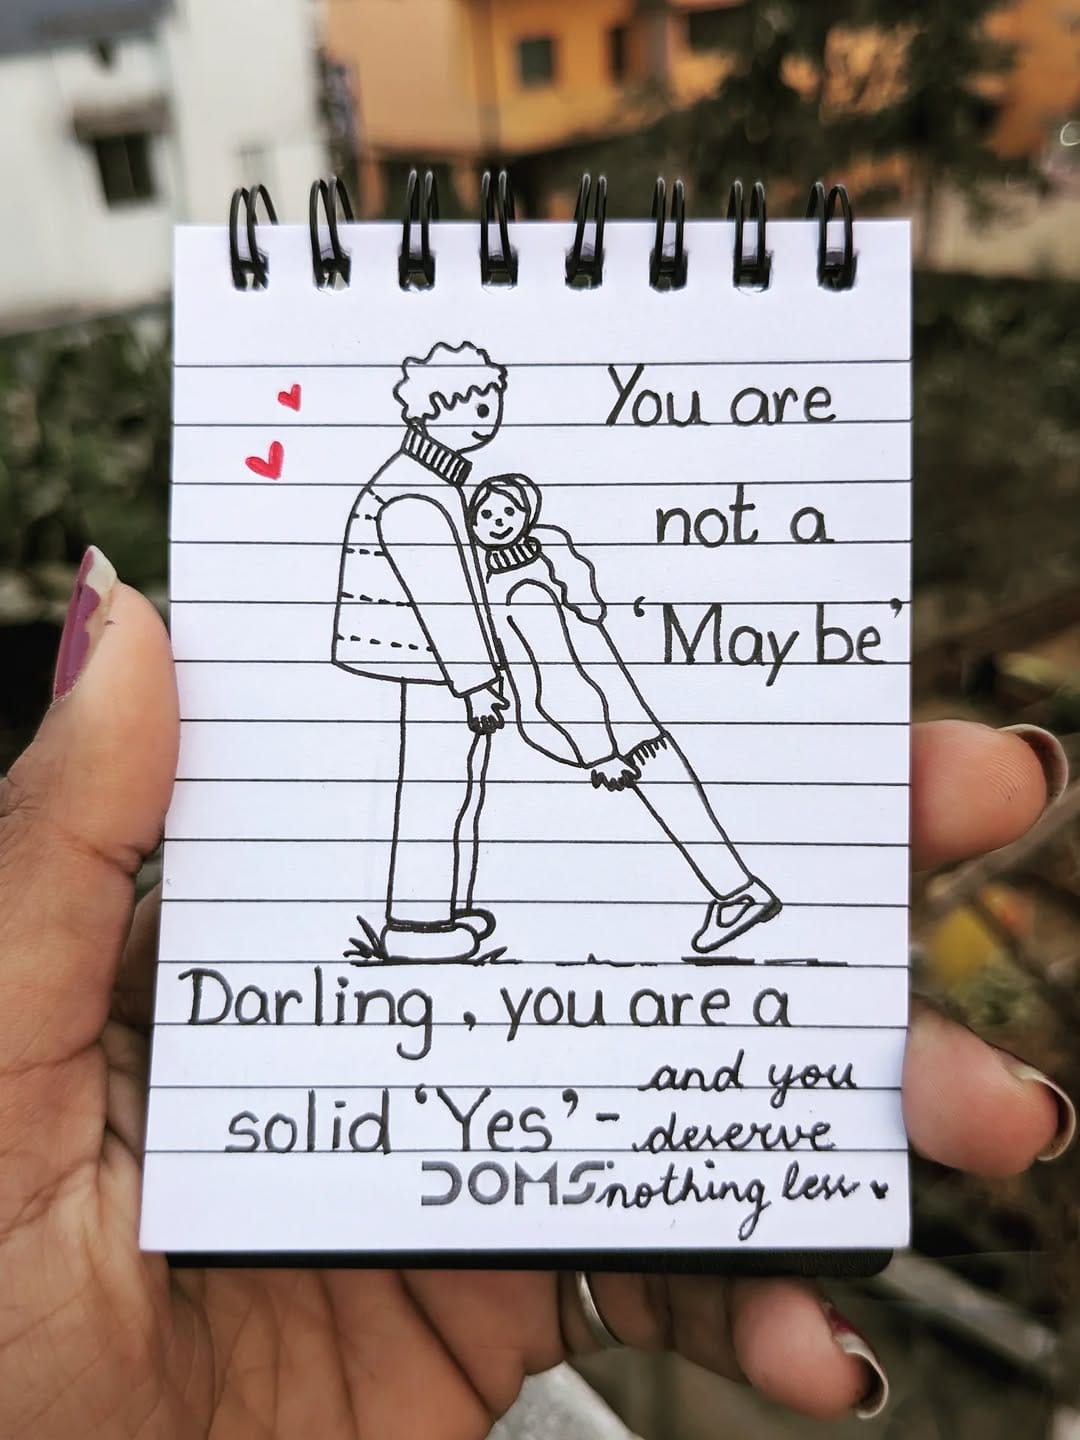 You are
not a
'Maybe'
Darling, you are a
solid 'Yes' -
and you
deserve
nothing less
DOMS